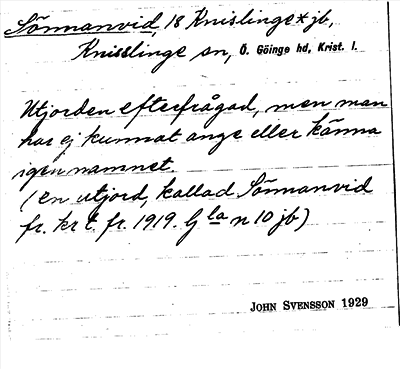 Sönnanvid, 18 Knislinge * jb,
Knisslinge sn, Ö. Göinge hd, Krist. l.
Utjorden efterfrågad, men man
har ej kunnat ange eller känna
igen namnet.
(en utjord, kallad Sönnanvid
fr. kr t. fr. 1919. lj la n 10 jb)
JOHN SVENSSON 1929